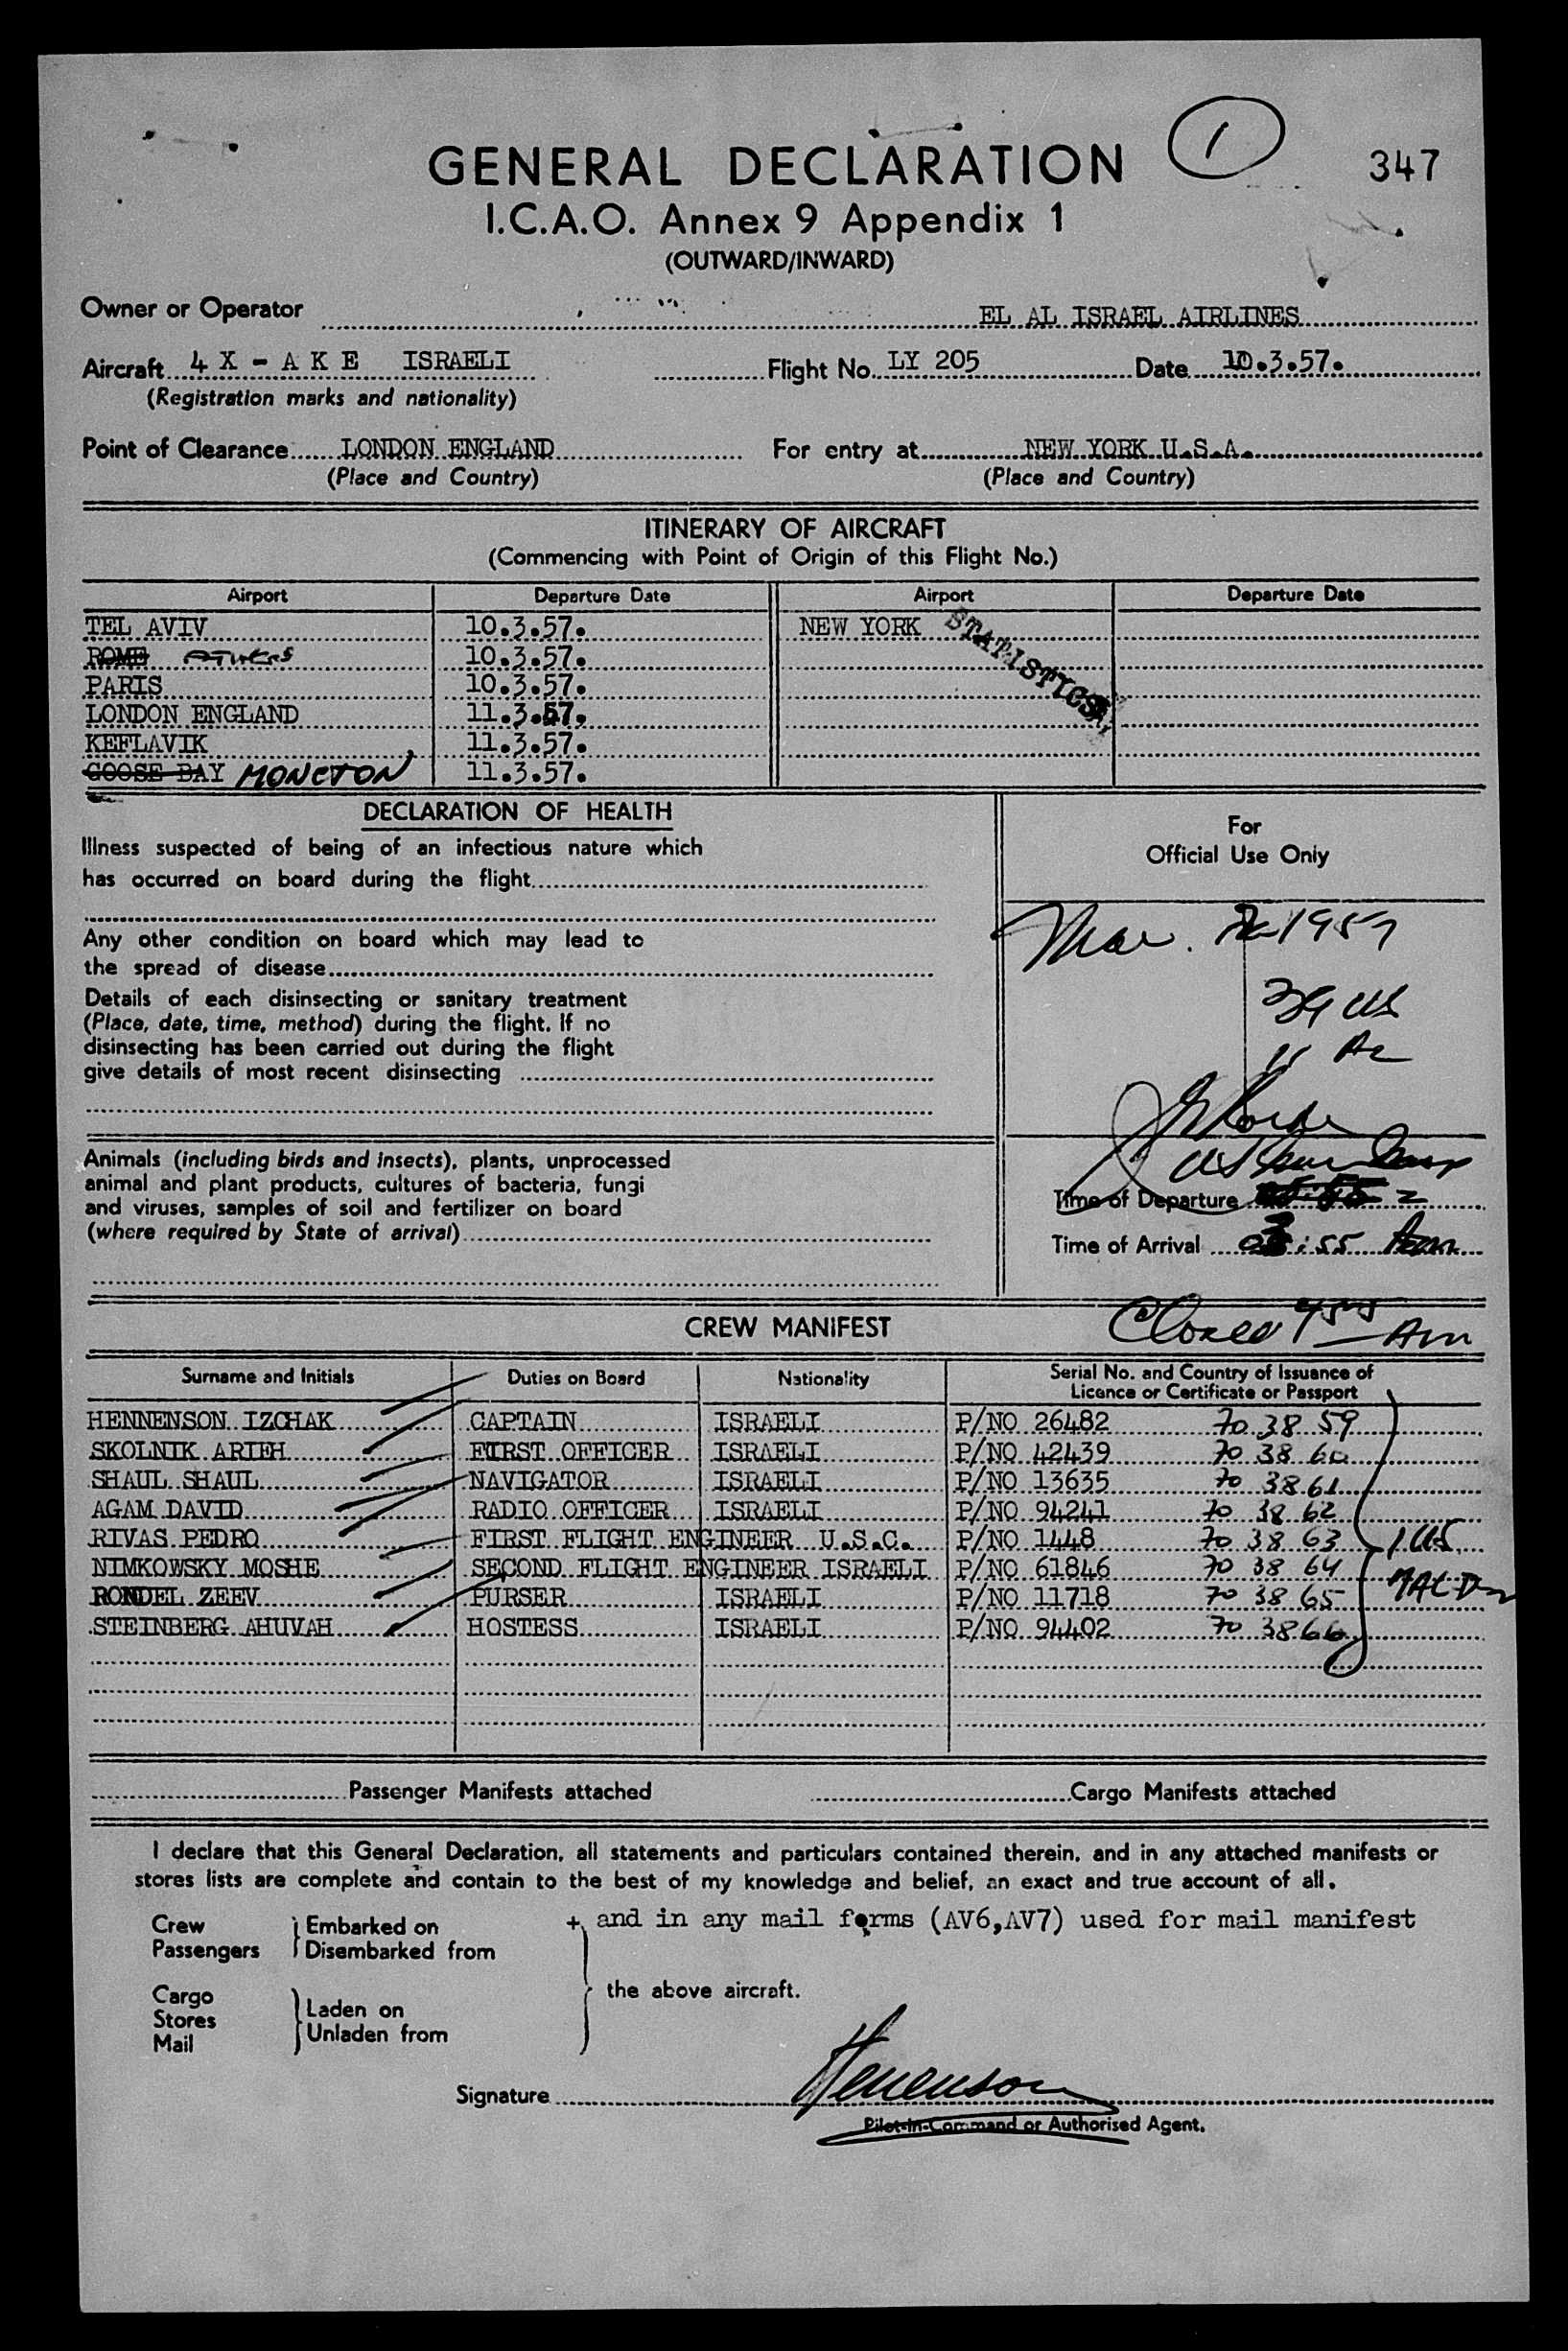 1
347
GENERAL DECLARATION
I.C.A.O. Annex 9 Appendix 1
(OUTWARD/INWARD)
Owner or Operator EL AL ISRAEL AIRLINES
Aircraft 4 X - A K E ISRAELI Flight No. LY 205 Date 10.3.57.
(Registration marks and nationality)
Point of Clearance LONDON ENGLAND For entry at NEW YORK U.S.A.
(Place and Country) (Place and Country)
ITINERARY OF AIRCRAFT
(Commencing with Point of Origin of this Flight No.)
Airport Departure Date Airport Departure Date
TEL AVIV 10.3.57. NEW YORK STATISTICS
ROME 10.3.57.
PARIS 10.3.57.
LONDON ENGLAND 11.3.57.
KEFLAVIK 11.3.57.
GOOSE BAY MONCTON 11.3.57.
DECLARATION OF HEALTH
Illness suspected of being of an infectious nature which
has occurred on board during the flight
Any other condition on board which may lead to
the spread of disease
Details of each disinsecting or sanitary treatment
(Place, date, time, method) during the flight. If no
disinsecting has been carried out during the flight
give details of most recent disinsecting
Animals (including birds and insects), plants, unprocessed
animal and plant products, cultures of bacteria, fungi
and viruses, samples of soil and fertilizer on board
(where required by State of arrival)
For
Official Use Only
Mar. 1957
39 US
Time of Departure
Time of Arrival :55
Closed 955 Am
CREW MANIFEST
Surname and Initials Duties on Board Nationality Serial No. and Country of Issuance of
Licence or Certificate or Passport
HENNENSON IZCHAK CAPTAIN ISRAELI P/NO 26482 70 38 59
SKOLNIK ARIEH FIRST OFFICER ISRAELI P/NO 42439 70 38 60
SHAUL SHAUL NAVIGATOR ISRAELI P/NO 13635 70 38 61
AGAM DAVID RADIO OFFICER ISRAELI P/NO 94241 70 38 62
RIVAS PEDRO FIRST FLIGHT ENGINEER U.S.C. P/NO 1448 70 38 63 1 US
NIMKOWSKY MOSHE SECOND FLIGHT ENGINEER ISRAELI P/NO 61846 70 38 64
RONDEL ZEEV PURSER ISRAELI P/NO 11718 70 38 65
STEINBERG AHUVAH HOSTESS ISRAELI P/NO 94402 70 38 66
Passenger Manifests attached Cargo Manifests attached
I declare that this General Declaration, all statements and particulars contained therein, and in any attached manifests or
stores lists are complete and contain to the best of my knowledge and belief, an exact and true account of all.
+ and in any mail forms (AV6,AV7) used for mail manifest
Crew Embarked on
Passengers Disembarked from
the above aircraft.
Cargo
Stores Laden on
Mail Unladen from
Signature Henenson
Pilot-in-Command or Authorised Agent.